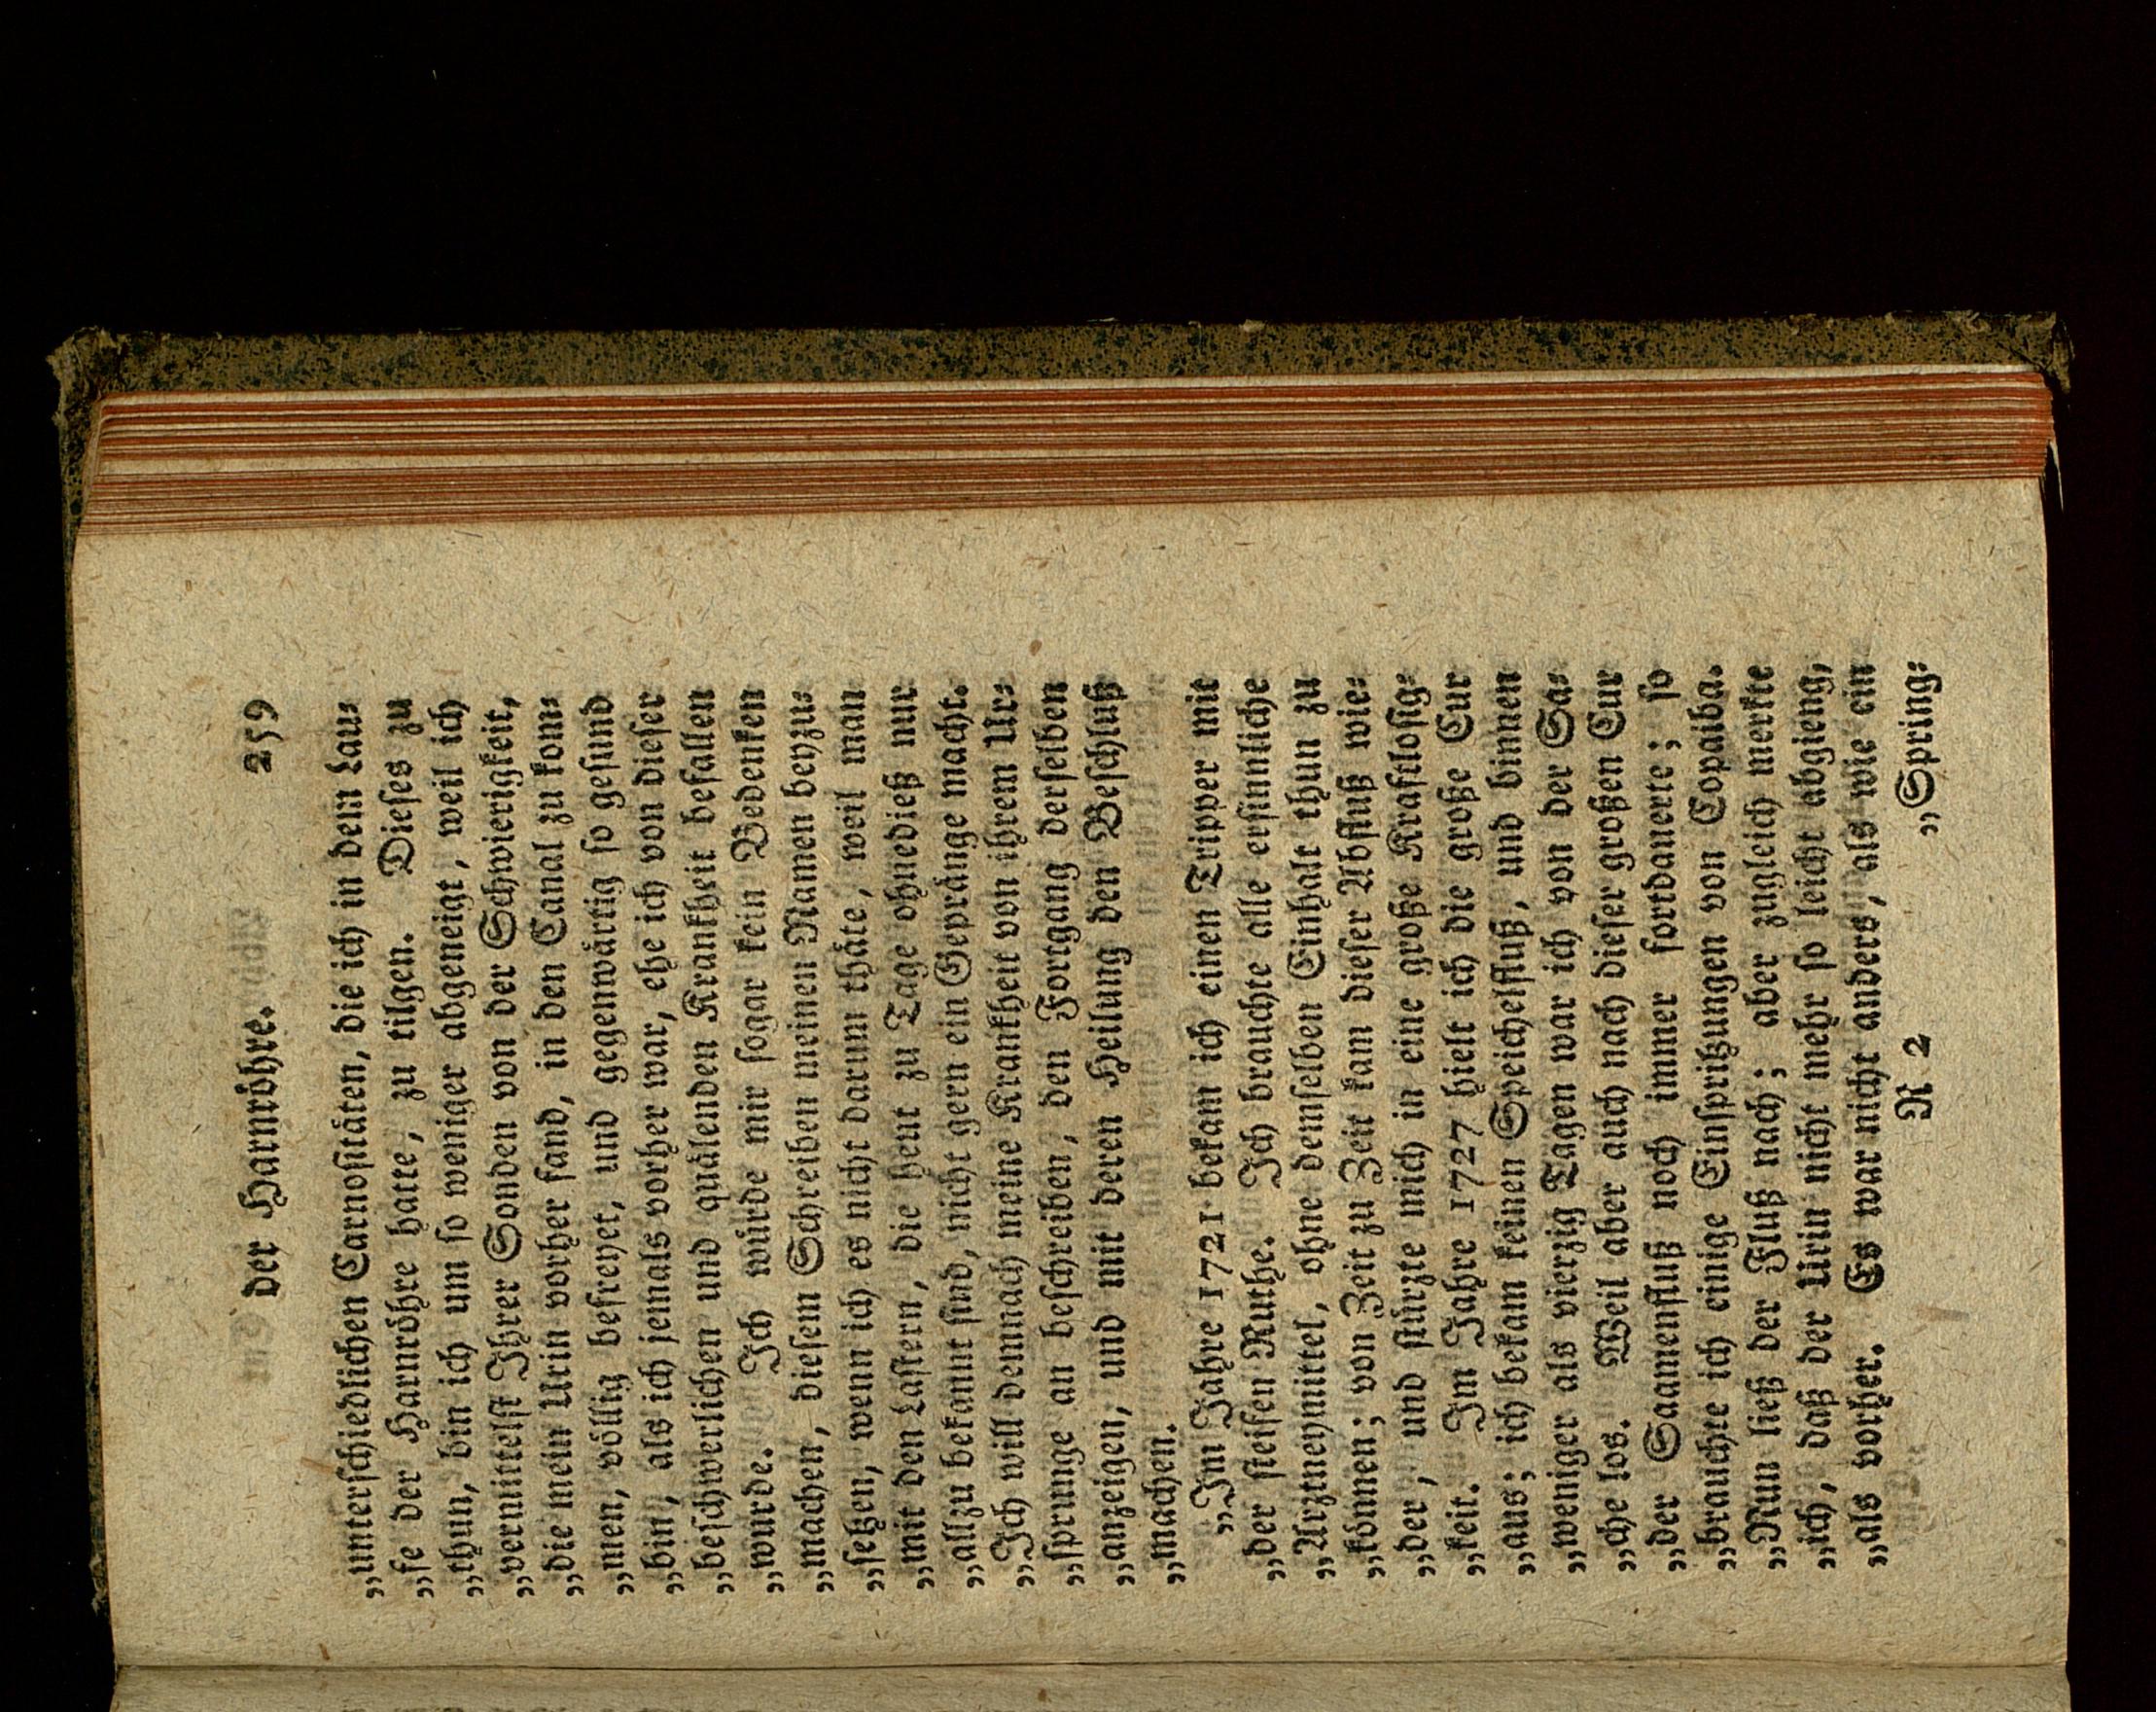 der Harnröhre. 259
„unterschiedlichen Carnositäten, die ich in dem Lau⸗
„fe der Harnröhre hatte, zu tilgen. Dieses zu
„thun, bin ich um so weniger abgeneigt, weil ich
„vermittelst Ihrer Sonden von der Schwierigkeit,
„die mein Urin vorher fand, in den Canal zu kom⸗
„men, völlig befreyet, und gegenwärtig so gesund
„bin, als ich jemals vorher war, ehe ich von dieser
„beschwerlichen und quälenden Krankheit befallen
„wurde. Ich würde mir sogar kein Bedenken
„machen, diesem Schreiben meinen Namen beyzu⸗
„setzen, wenn ich es nicht darum thäte, weil man
„mit den Lastern, die heut zu Tage ohnedieß nur
„allzu bekannt sind, nicht gern ein Gepränge macht.
„Ich will demnach meine Krankheit von ihrem Ur⸗
„sprunge an beschreiben, den Fortgang derselben
„anzeigen, und mit deren Heilung den Beschluß
„machen.
„Im Jahre 1721 bekam ich einen Tripper mit
„der steifen Ruthe. Ich brauchte alle ersinnliche
„Arztneymittel, ohne demselben Einhalt thun zu
„können; von Zeit zu Zeit kam dieser Abfluß wie⸗
„der, und stürzte mich in eine große Kraftlosig⸗
„keit. Im Jahre 1727 hielt ich die große Cur
„aus; ich bekam keinen Speichelfluß, und binnen
„weniger als vierzig Tagen war ich von der Sa⸗
„che los. Weil aber auch nach dieser großen Cur
„der Saamenfluß noch immer fortdauerte; so
„brauchte ich einige Einspritzungen von Copaiba.
„Nun ließ der Fluß nach; aber zugleich merkte
„ich, daß der Urin nicht mehr so leicht abgieng,
„als vorher. Es war nicht anders, als wie ein
R 2 „Spring⸗